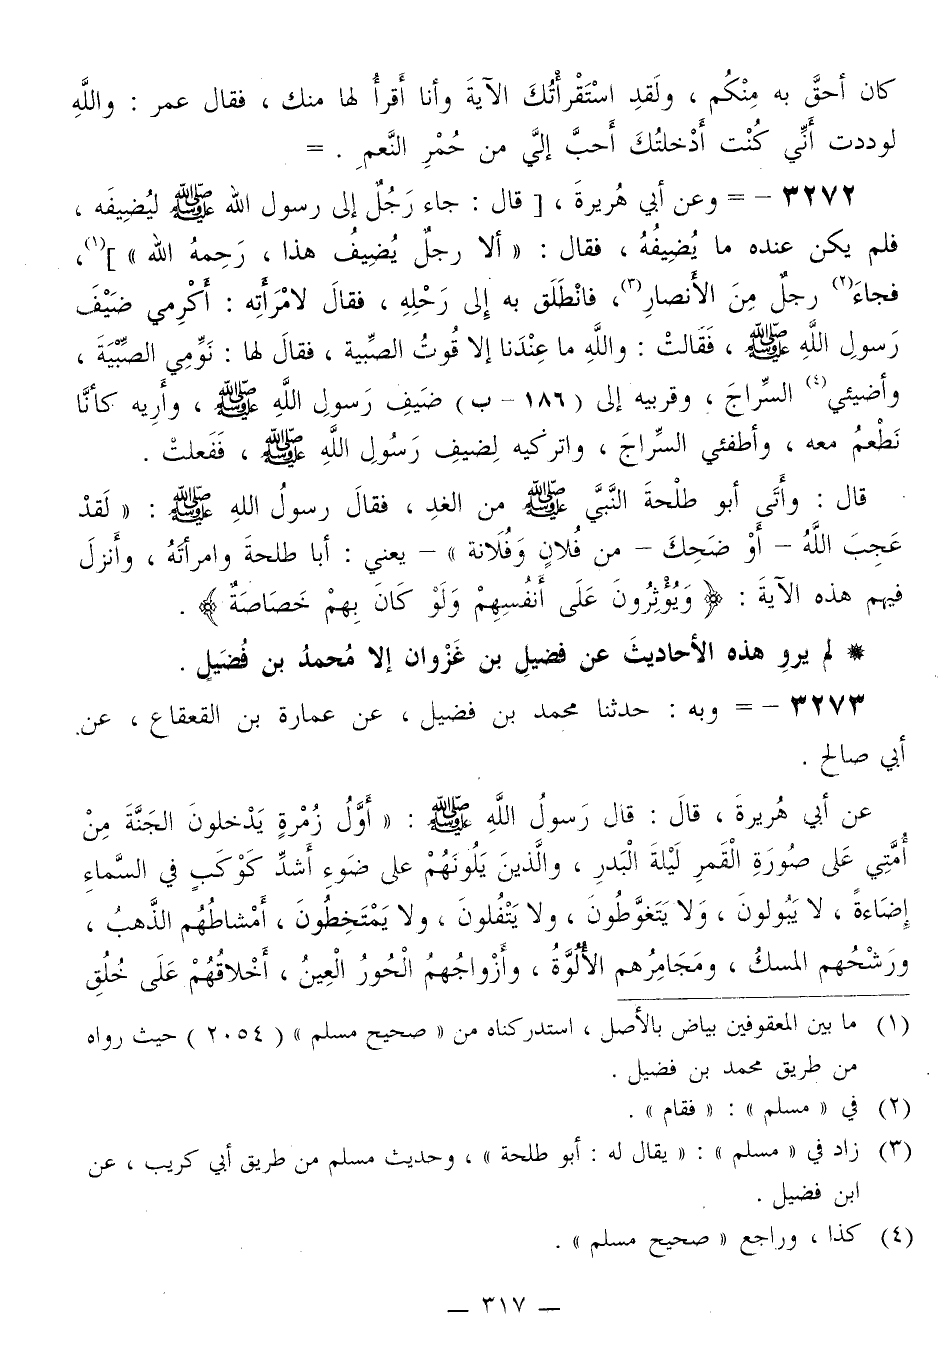 كان أحقَّ به مِنْكُم ، ولَقدِ اسْتَقْرأْتُكَ الآيةَ وأنا أَقرأُ لها منك ، فقال عمر : واللَّهِ
لوددت أَنِّي كُنْت أَدْخلتُكَ أَحبَّ إليَّ من حُمْرِ النَّعمِ . =
٣٢٧٢ – = وعن أبي هُريرةَ ، [ قال : جاء رَجُلٌ إلى رسول الله ﷺ ليُضِيفَه ،
فلم يكن عنده ما يُضِيفُهُ ، فقال : « ألا رجلٌ يُضِيفُ هذا ، رَحِمهُ الله » ](١)،
فجاءَ(٢) رجلٌ مِنَ الأَنصارِ(٣)، فانْطَلَق به إِلى رَحْلِهِ ، فقالَ لامْرَأَتِه : أَكْرِمي ضَيْفَ
رَسولِ اللَّهِ ﷺ ، فَقَالتْ : واللَّهِ ما عِنْدَنا إلا قُوتُ الصِّبية ، فقالَ لها : نَوِّمِي الصِّبْيَةَ ،
وأضيئي(٤) السِّراجَ ، وقربيه إلى ( ١٨٦ - ب ) ضَيَفِ رَسولِ اللَّهِ ﷺ ، وأَرِيه كأنَّا
نَطْعمُ معه ، وأطفئي السِّراجَ ، واتركيه لِضيفِ رَسُولِ اللَّهِ ﷺ ، فَفَعلتْ .
قال : وأَتَى أبو طلْحةَ النَّبيَّ ﷺ من الغدِ ، فقالَ رسولُ اللهِ ﷺ : « لَقدْ
عَجِبَ اللَّهُ – أَوْ ضَحِكَ – من فُلانٍ وَفُلَانة » – يعني : أبا طلحةَ وامرأتَهُ ، وأَنزلَ
فيهم هذه الآيةَ : ﴿ وَيُؤْثِرُونَ عَلَى أَنفُسِهِمْ وَلَوْ كَانَ بِهِمْ خَصَاصَةٌ ﴾ .
* لم يروِ هذه الأحاديثَ عن فضيلِ بن غَزْوان إلا مُحمدُ بن فُضَيَلٍ .
٣٢٧٣ – = وبه : حدثنا محمد بن فضيل ، عن عمارة بن القعقاع ، عن
أبي صالح .
عن أبي هُريرةَ ، قالَ : قال رَسولُ اللَّهِ ﷺ : « أَوَّلُ زُمْرةٍ يَدْخلونَ الجنَّةَ مِنْ
أُمَّتِي عَلى صُورَةِ الْقَمرِ لَيْلةَ الْبَدرِ ، والَّذينَ يَلُونَهُمْ على ضَوءِ أَشدِّ كَوْكَبٍ في السَّماءِ
إِضَاءةً ، لا يَبُولونَ ، وَلا يَتغوَّطُونَ ، ولا يَتْفُلونَ ، ولا يَمْتَخِطُونَ ، أَمْشاطُهُم الذَّهبُ ،
ورَشْحُهم المسكُ ، ومَجَامِرُهم الأَلُوَّةُ ، وأَزْواجُهمُ الْحُورُ الْعِينُ ، أَخْلاقُهُمْ عَلَى خُلُقِ
(١) ما بين المعقوفين بياض بالأصل ، استدركناه من « صحيح مسلم » ( ٢٠٥٤ ) حيث رواه
من طريق محمد بن فضيل .
(٢) في « مسلم » : « فقام » .
(٣) زاد في « مسلم » : « يقال له : أبو طلحة » ، وحديث مسلم من طريق أبي كريب ، عن
ابن فضيل .
(٤) كذا ، وراجع « صحيح مسلم » .
– ٣١٧ –